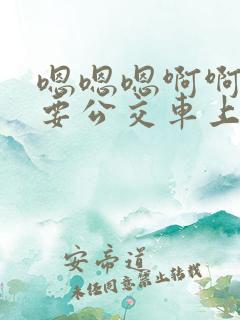 嗯嗯嗯啊啊
要公交車上
安帝道
未经同意禁止转载